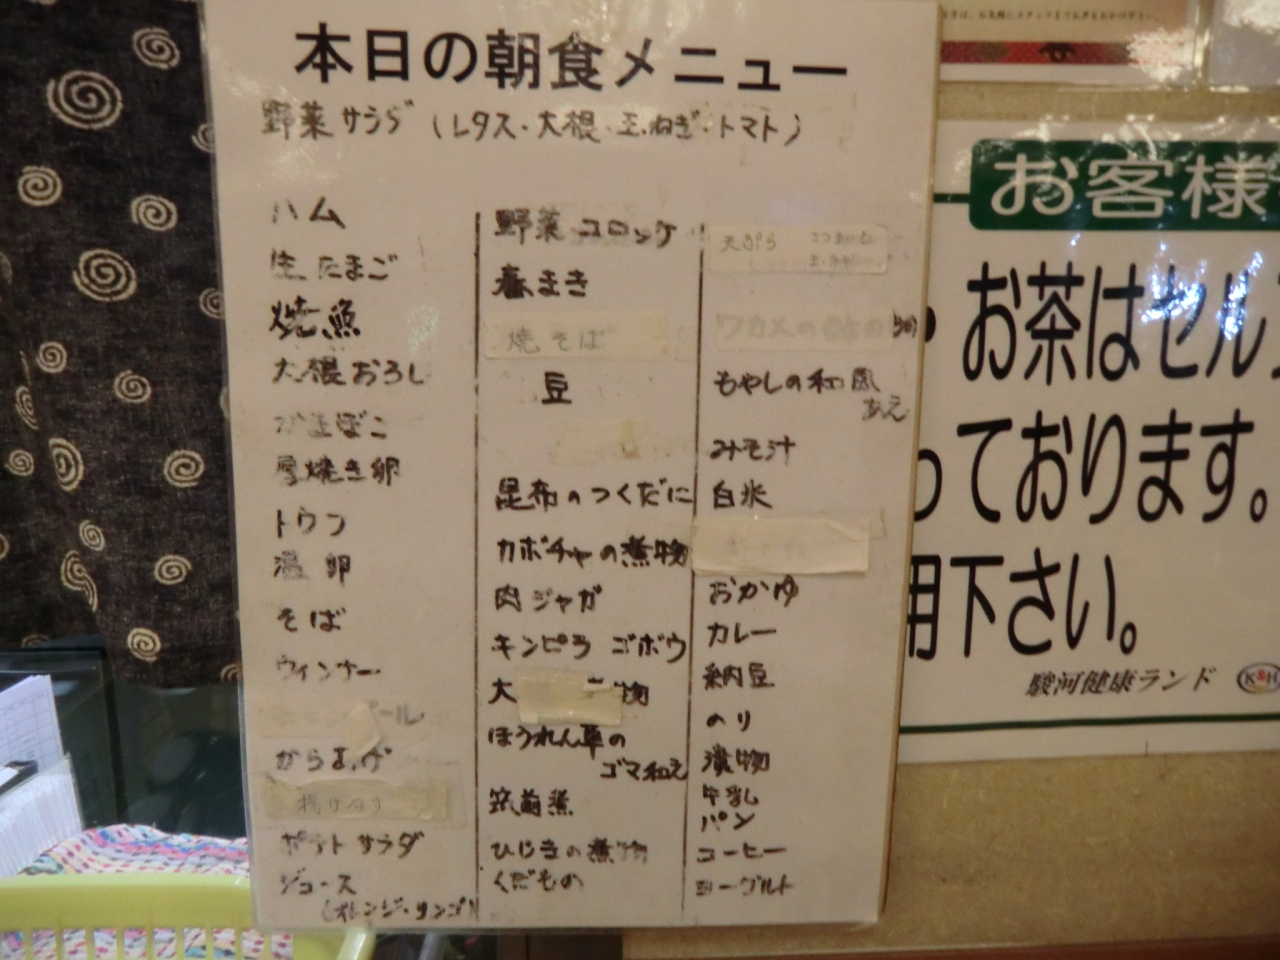 本日の朝食メニュー
野菜サラダ(レタス・大根・玉ねぎ・トマト)
ハム
生たまご
焼魚
大根おろし
かまぼこ
厚焼き卵
トウフ
温卵
そば
ウィンナー
からあげ
揚げなす
ポテトサラダ
ジュース
(オレンジ・リンゴ)
野菜コロッケ
春まき
焼そば
豆
昆布のつくだに
カボチャの煮物
肉ジャガ
キンピラゴボウ
大 物
ほうれん草の
ゴマ和え
筑前煮
ひじきの煮物
くだもの
天ぷら
ワカメの
もやしの和風
あえ
みそ汁
白米
おかゆ
カレー
納豆
のり
漬物
牛乳
パン
コーヒー
ヨーグルト
お客様
お茶はセル
っております。
用下さい。
駿河健康ランド
K&H